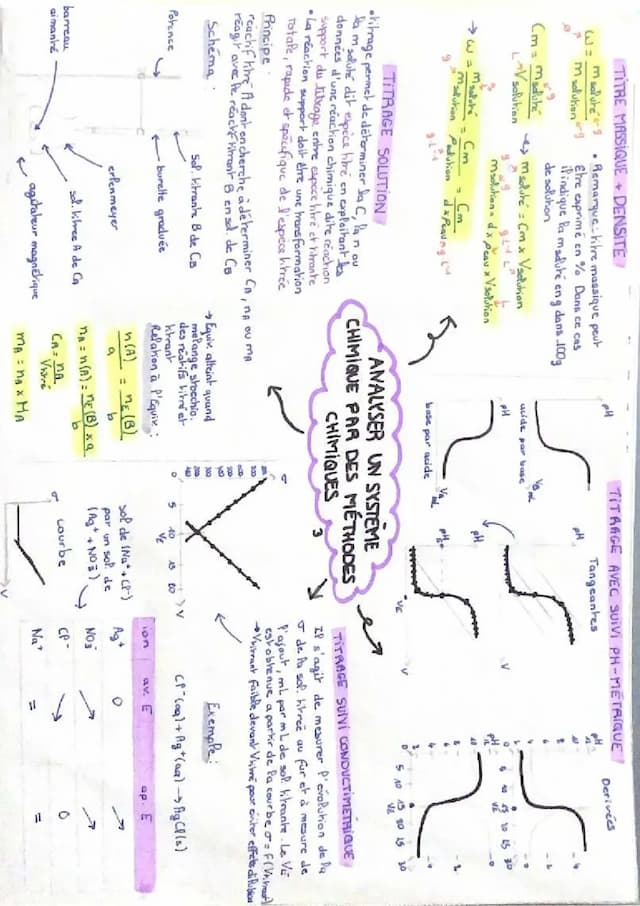 TITRE MASSIQUE + DENSITÉ
ω = m soluté ← g / m solution ← g
• Remarque: titre massique peut
être exprimé en %. Dans ce cas
il indique la m soluté en g dans 100g
de solution
Cm = m soluté / V solution
↳ m soluté = Cm × V solution
m solution = d × ρeau × V solution
→ ω = m soluté / m solution = Cm / ρ solution = Cm / d × ρeau
TITRAGE SOLUTION
• titrage permet de déterminer la C, la n ou
la m soluté dit espèce titré en exploitant les
données d'une réaction chimique dite réaction
support du titrage entre espèce titré et titrante
• La réaction support doit être une transformation
totale, rapide et spécifique de l'espèce titrée
Principe:
réactif titré A dont on cherche à déterminer CA, nA ou mA
réagit avec le réactif titrant B en sol. de CB
Schéma:
Potence
sol. titrante B de CB
burette graduée
erlenmeyer
sol. titrée A de CA
agitateur magnétique
barreau
aimanté
→ Equiv. atteint quand
mélange stoechio.
des réactifs titré et
titrant
Relation à l'Equiv.:
n(A) / a = nE(B) / b
nA = n(A) = nE(B) × a / b
CA = nA / Vtitré
mA = nA × MA
ANALYSER UN SYSTÈME
CHIMIQUE PAR DES MÉTHODES
CHIMIQUES
3
TITRAGE AVEC SUIVI PH-MÉTRIQUE
pH
acide par base
VB mL
pH
base par acide
VA mL
Tangeantes
pH
V
pH
pHE
VE
V
Dérivées
pH
0 5 10 15 20 25 30
VE
pH
0 5 10 15 20 25 30
VE
TITRAGE SUIVI CONDUCTIMÉTRIQUE
Il s'agit de mesurer l'évolution de la
σ de la sol. titrée au fur et à mesure de
l'ajout, mL par mL de sol. titrante. Le VE
est obtenue à partir de la courbe σ = f(Vtitrant)
→ Vtitrant faible devant Vtitré pour éviter effets dilution
Exemple:
Cl⁻(aq) + Ag⁺(aq) → AgCl(s)
σ
0 5 10 15 20
VE
V
sol de (Na⁺ + Cl⁻)
par un sol. de
(Ag⁺ + NO₃⁻)
courbe
σ
V
ion | av. E | ap. E
Ag⁺ 0 ↗
NO₃⁻ ↗ ↗
Cl⁻ ↘ 0
Na⁺ = =